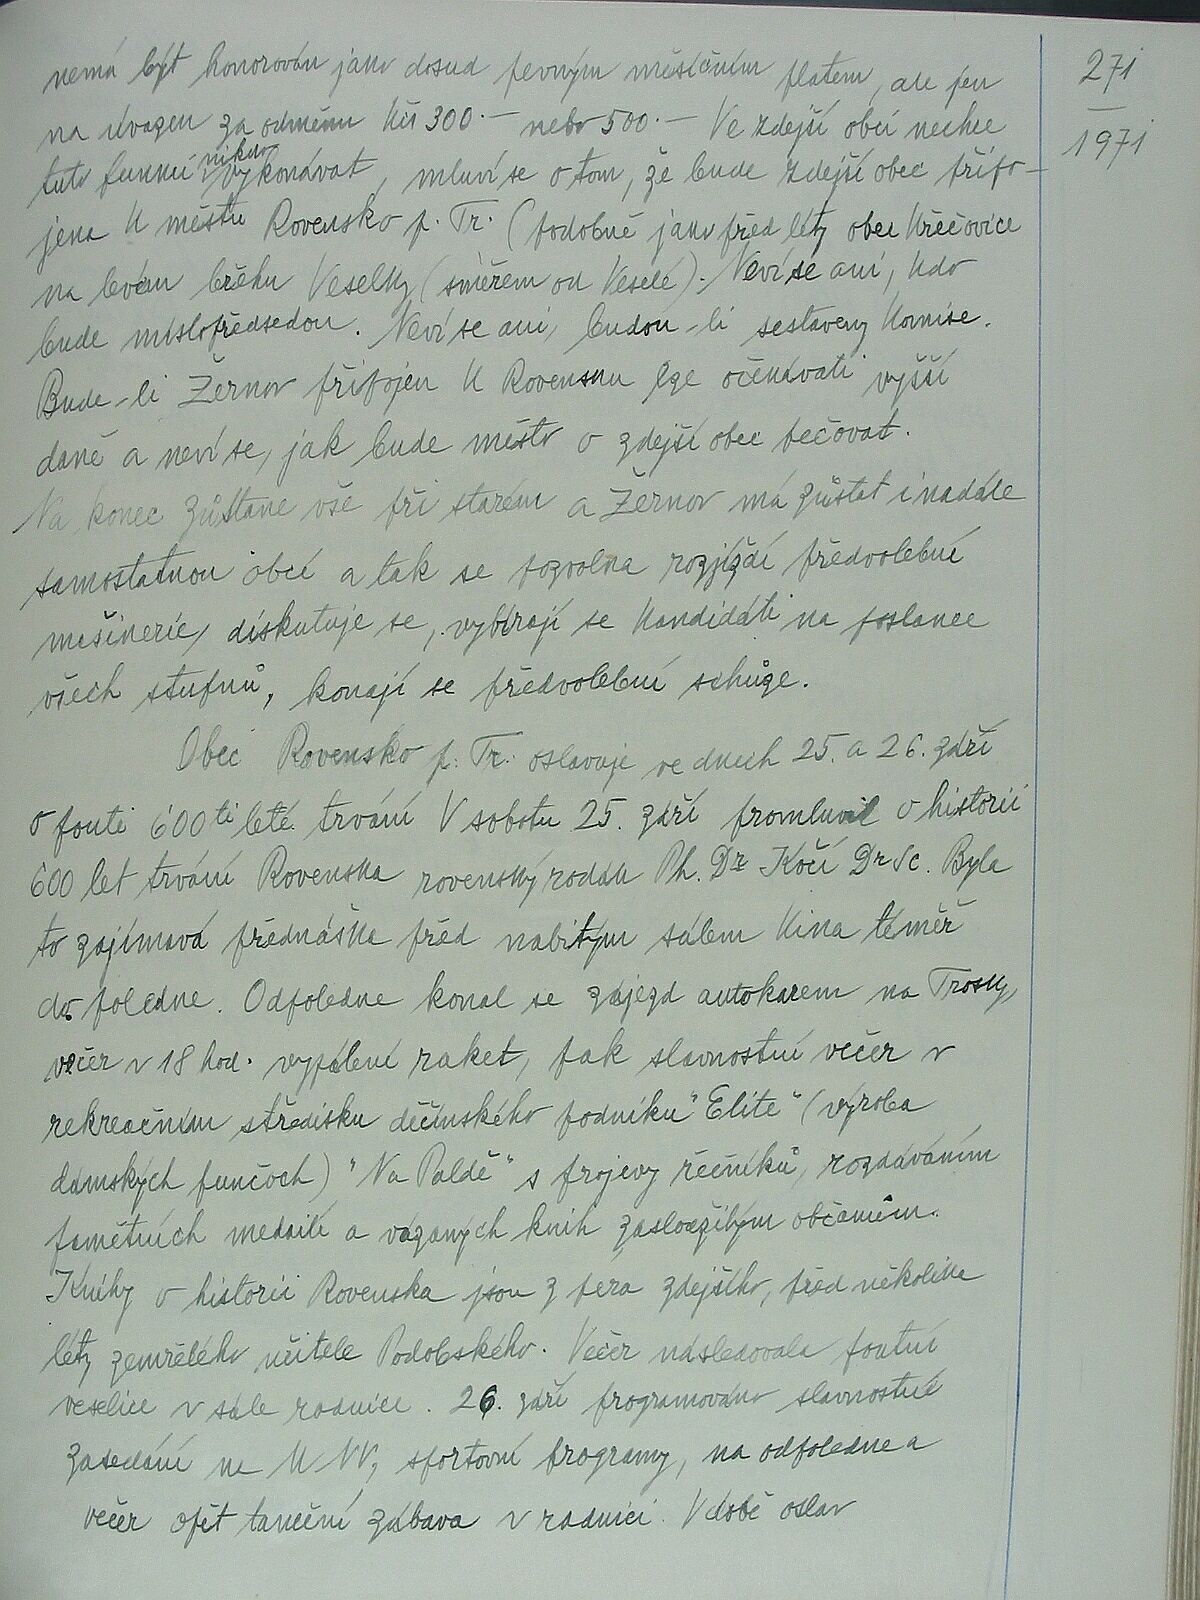 nemá být honorován jako dosud pevným měsíčním platem, ale jen
na úvazek za odměnu Kčs 300.- nebo 500.- Ve zdejší obci nechce
tuto funkci nikdo vykonávat, mluví se o tom, že bude zdejší obec připo-
jena k městu Rovensko p. Tr. (podobně jako před léty obec Křečovice
na levém břehu Veselky (směrem od Veselé). Neví se ani, kdo
bude místopředsedou. Neví se ani, budou-li sestaveny komise.
Bude-li Žernov připojen k Rovensku lze očekávati vyšší
daně a neví se, jak bude město o zdejší obec pečovat.
Na konec zůstane vše při starém a Žernov má zůstat i nadále
samostatnou obcí a tak se pozvolna rozjíždí předvolební
mašinerie, diskutuje se, vybírají se kandidáti na poslance
všech stupňů, konají se předvolební schůze.
Obec Rovensko p. Tr. oslavuje ve dnech 25. a 26. září
o pouti 600 ti leté trvání V sobotu 25. září promluvil o historii
600 let trvání Rovenska rovenský rodák Ph. Dr Kočí DrSc. Byla
to zajímavá přednáška před nabitým sálem kina téměř
do poledne. Odpoledne konal se zájezd autokarem na Trosky,
večer v 18 hod. vypálení raket, pak slavnostní večer v
rekreačním středisku děčínského podniku "Elite" (výroba
dámských punčoch) "Na Paldě" s projevy řečníků, rozdáváním
pamětních medailí a vázaných knih zasloužilým občanům.
Knihy o historii Rovenska jsou z pera zdejšího, před několika
léty zemřelého učitele Podobského. Večer následovala poutní
veselice v sále radnice. 26. září programováno slavnostní
zasedání na MNV, sportovní programy, na odpoledne a
večer opět taneční zábava v radnici. V době oslav
271
1971